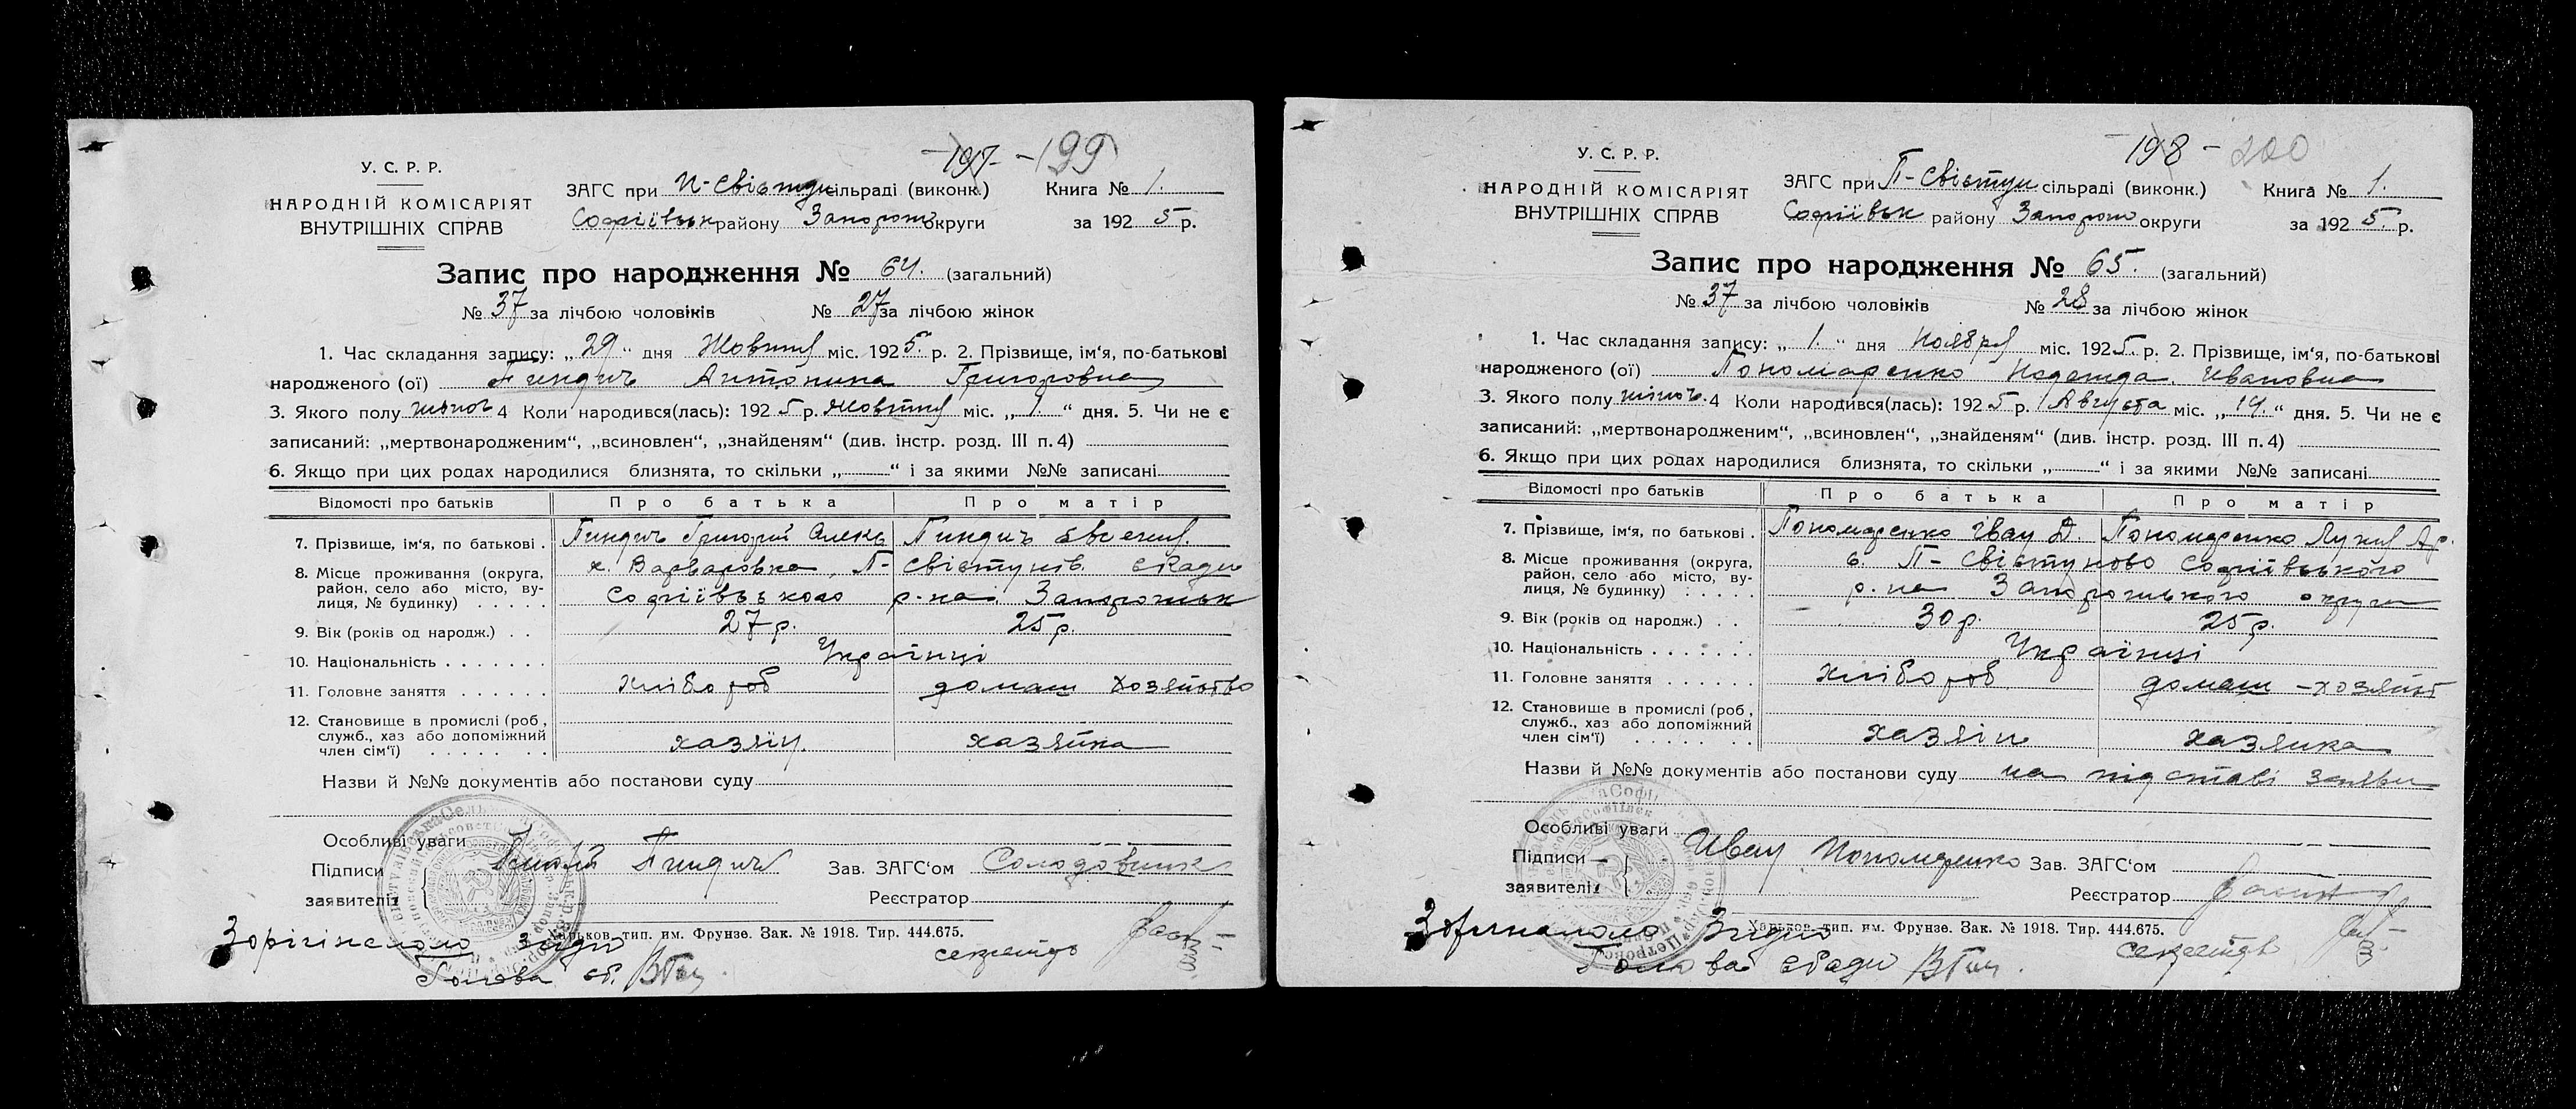 197 - 199
У. С. Р. Р.
НАРОДНІЙ КОМІСАРІЯТ
ВНУТРІШНІХ СПРАВ
ЗАГС при П-Свістун сільраді (виконк.) Книга № 1.
Софіївськ району Запорож округи за 1925 р.
Запис про народження № 64. (загальний)
№ 37 за лічбою чоловіків № 27 за лічбою жінок
1. Час складання запису: „ 29 " дня Жовтня міс. 1925. р. 2. Прізвище, ім'я, по-батькові
народженого (ої) Пиндич Антонина Григоровна
3. Якого полу жіноч 4 Коли народився(лась): 1925 р. Жовтня міс. „ 1. " дня. 5. Чи не є
записаний: „мертвонародженим", „всиновлен", „знайденям" (див. інстр. розд. III п. 4)
6. Якщо при цих родах народилися близнята, то скільки „ " і за якими №№ записані
Відомості про батьків Про батька Про матір
7. Прізвище, ім'я, по батькові . Пиндич Григорий Олекс Пиндич Евгения.
8. Місце проживання (округа, район, село або місто, вулиця, № будинку) х. Варваровка, П- Свістунів. сради
Софіївського р-на. Запорожськ
9. Вік (років од народж.) . . 27 р. 25 р.
10. Національність . . . . . . . Українці
11. Головне заняття . . . . . . хлібороб домаш хозяйство
12. Становище в промислі (роб., служб., хаз або допоміжний член сім'ї) хазяїн. хазяйка
Назви й №№ документів або постанови суду
Особливі уваги
Підписи заявителів Пиндич Зав. ЗАГС'ом Солодовник
Реєстратор
Харьков, тип. им. Фрунзе. Зак. № 1918. Тир. 444.675.
З оригіналом згідно
Голова ср. секретарь
198 - 200
У. С. Р. Р.
НАРОДНІЙ КОМІСАРІЯТ
ВНУТРІШНІХ СПРАВ
ЗАГС при П-Свістун сільраді (виконк.) Книга № 1.
Софіївськ району Запорож округи за 1925. р.
Запис про народження № 65. (загальний)
№ 37 за лічбою чоловіків № 28 за лічбою жінок
1. Час складання запису: „ 1. " дня Ноября міс. 1925. р. 2. Прізвище, ім'я, по-батькові
народженого (ої) Пономаренко Надежда Ивановна
3. Якого полу жіноч. 4 Коли народився(лась): 1925 р. Августа міс. „ 14. " дня. 5. Чи не є
записаний: „мертвонародженим", „всиновлен", „знайденям" (див. інстр. розд. III п. 4)
6. Якщо при цих родах народилися близнята, то скільки „ " і за якими №№ записані
Відомості про батьків Про батька Про матір
7. Прізвище, ім'я, по батькові . Пономаренко Іван Д. Пономаренко Лукия Ар.
8. Місце проживання (округа, район, село або місто, вулиця, № будинку) с. П- Свістуново Софіївського
р.на Запорожського округи
9. Вік (років од народж.) . . 30 р. 25 р.
10. Національність . . . . . . . Українці
11. Головне заняття . . . . . . хлібороб домаш - хозяйст
12. Становище в промислі (роб., служб., хаз або допоміжний член сім'ї) хазяін хазяика
Назви й №№ документів або постанови суду на підставі заяви
Особливі уваги
Підписи заявителів Иван Пономаренко Зав. ЗАГС'ом
Реєстратор
Харьков, тип. им. Фрунзе. Зак. № 1918. Тир. 444.675.
З оригіналом Згідно
Голова сради секретарь